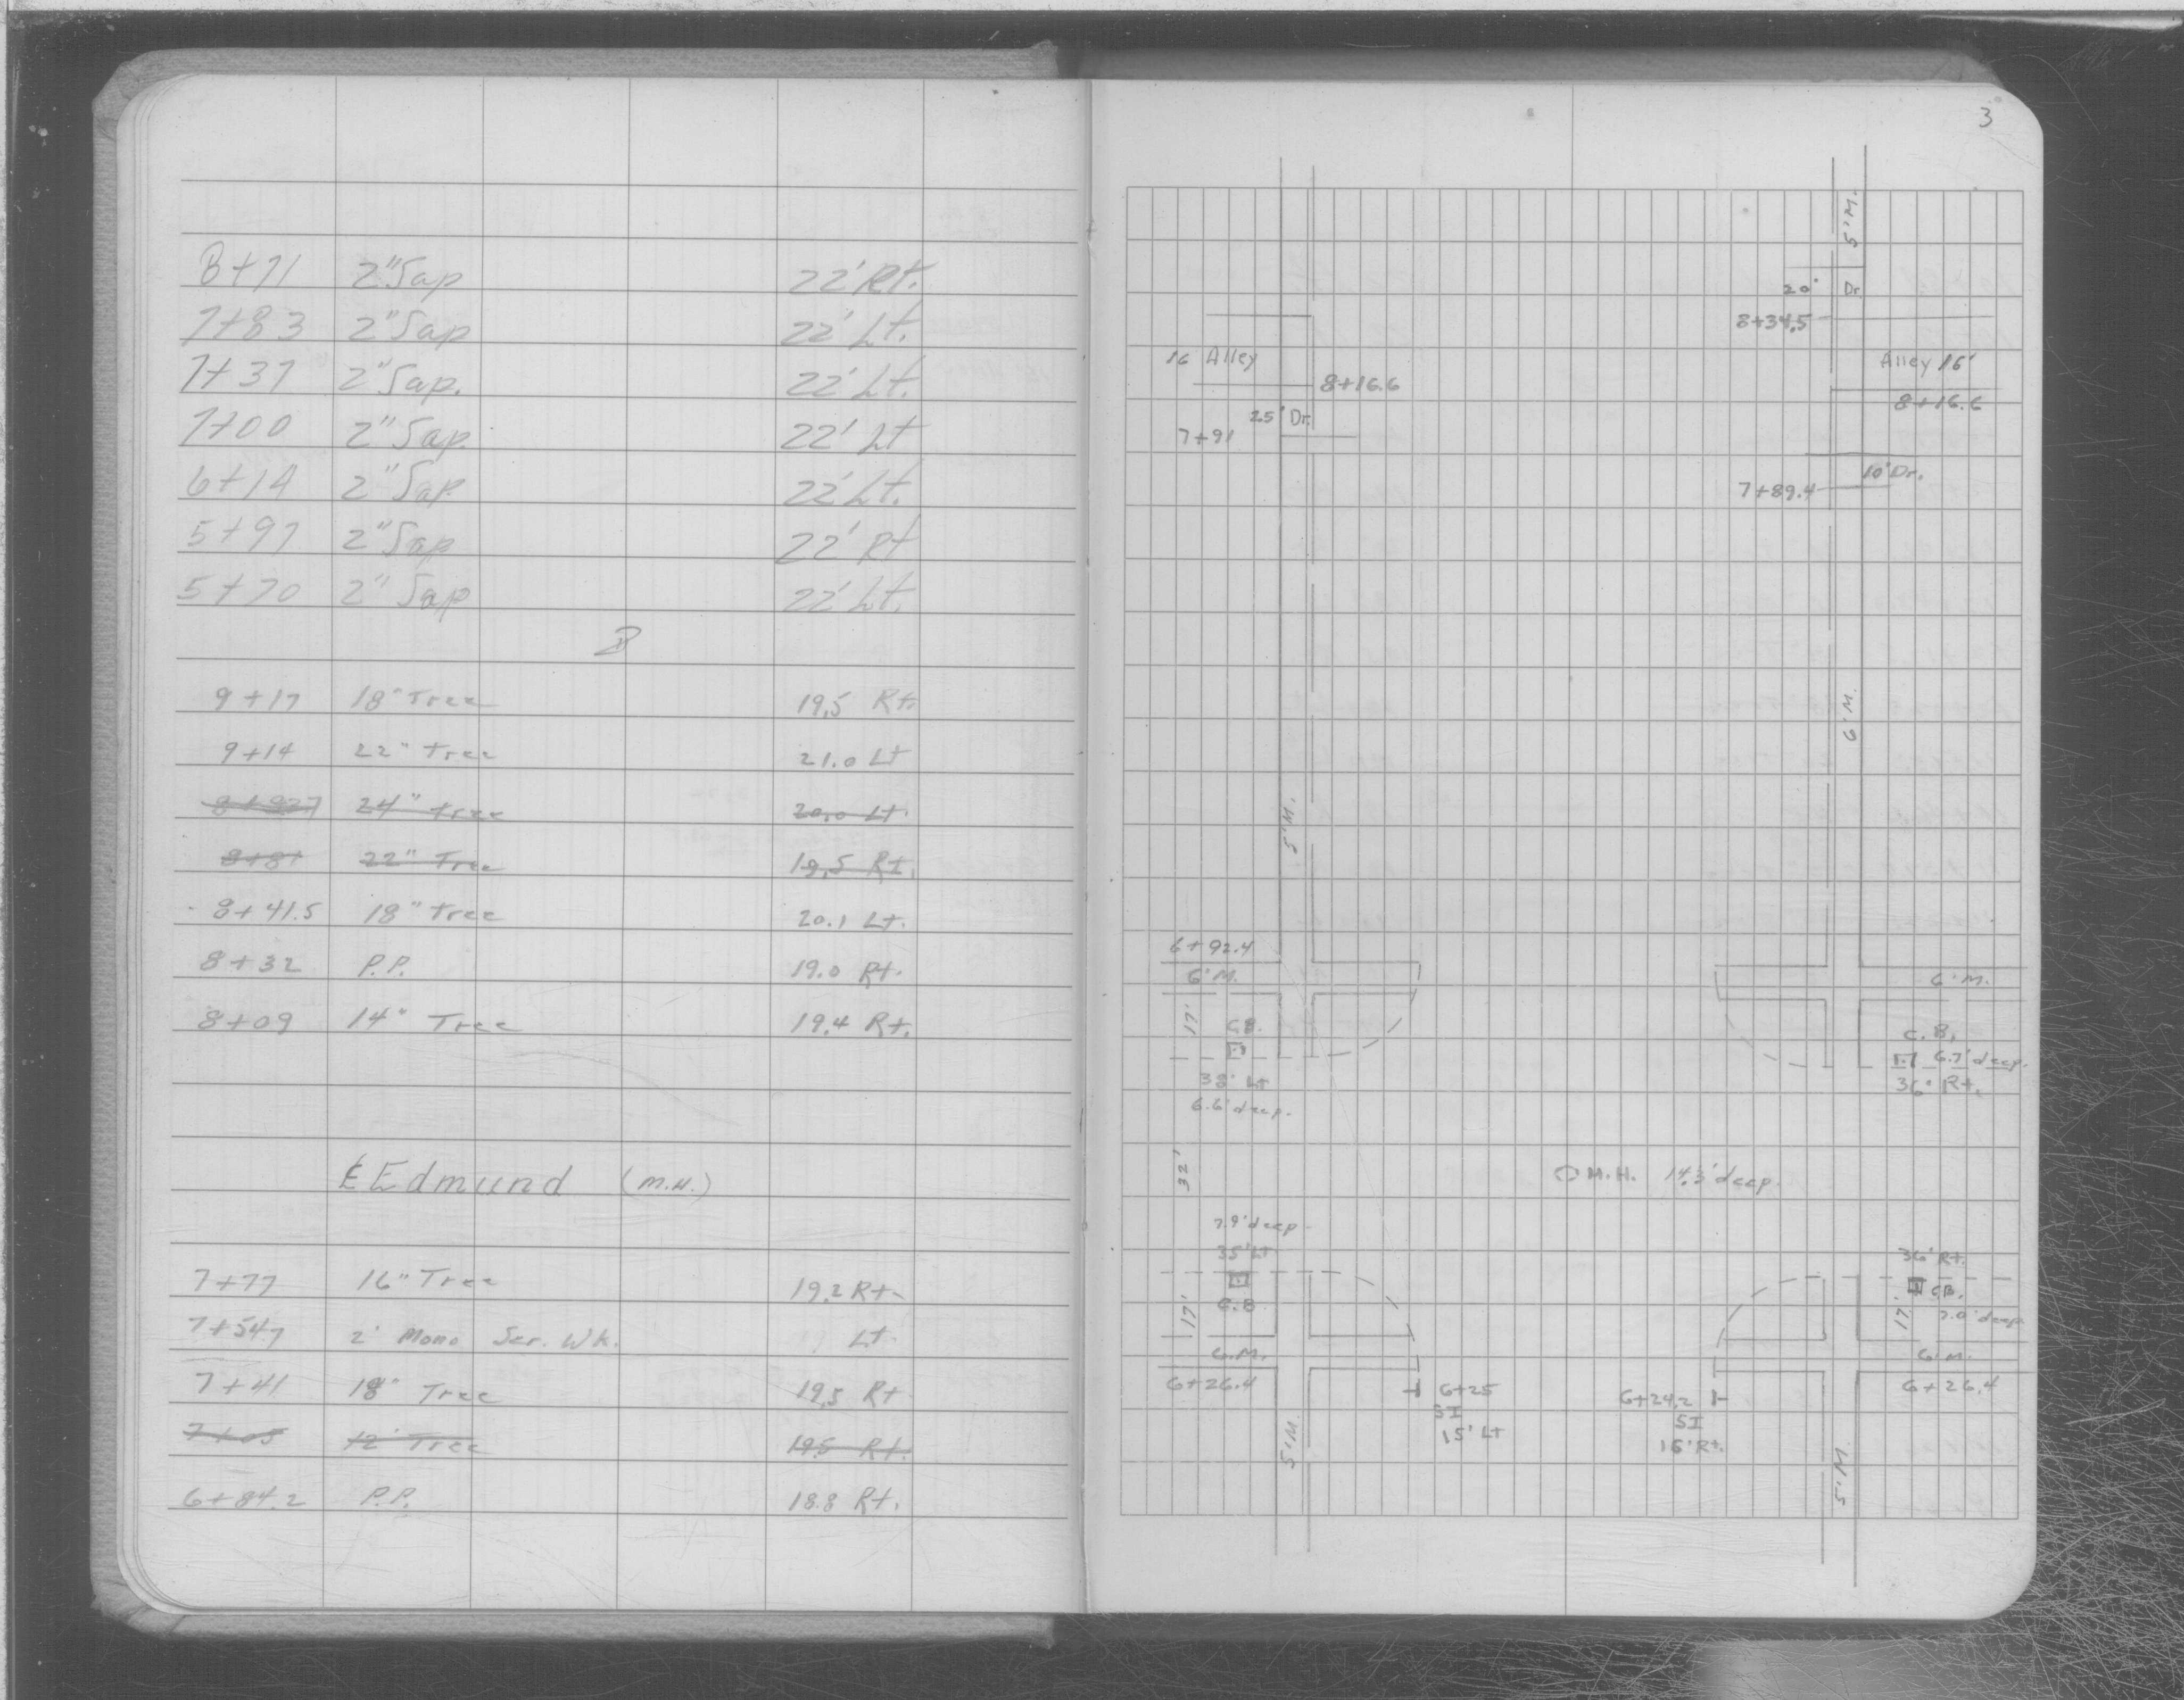 8+71 2" Sap 22' Rt.
7+83 2" Sap 22' Lt.
7+37 2" Sap. 22' Lt.
7+00 2" Sap. 22' Lt
6+14 2" Sap 22' Lt.
5+97 2" Sap 22' Rt
5+70 2" Sap 22' Lt.
9+17 18" Tree 19.5 Rt.
9+14 22" Tree 21.0 Lt
24" Tree 20.0 Lt.
8+81 22" Tree 19.5 Rt.
8+41.5 18" Tree 20.1 Lt.
8+32 P.P. 19.0 Rt.
8+09 14" Tree 19.4 Rt.
℄ Edmund (M.H.)
7+77 16" Tree 19.2 Rt.
7+54.7 2' Mono Ser. Wk. Lt.
7+41 18" Tree 19.5 Rt
7+05 12" Tree 19.5 Rt.
6+84.2 P.P. 18.8 Rt.
3
5' M.
20' Dr
8+34.5
16 Alley
Alley 16'
8+16.6
8+16.6
25' Dr.
7+91
10' Dr.
7+89.4
6' M.
5' M.
6+92.4
6' M.
6' M.
17'
C.B.
C.B.
6.7' deep.
38' Lt
36' Rt.
6.6' deep.
32'
M.H. 14.3' deep.
7.9' deep
35' Lt
36' Rt.
17'
C.B
17'
C.B.
7.0' deep
6' M.
6' M.
6+26.4
6+25
SI
15' Lt
6+24.2
SI
15' Rt.
6+26.4
5' M.
5' M.